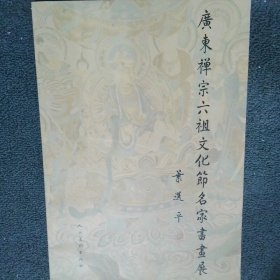 廣東禪宗六祖文化節名家書畫展
葉選平